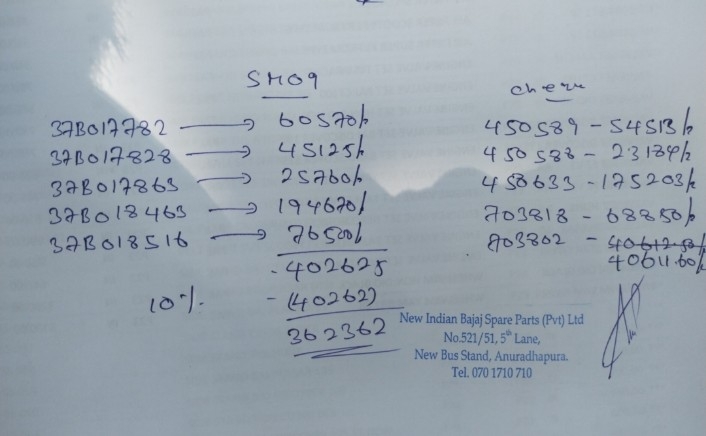 SM09
Cheque
37B017782 → 60570/-
450589 - 54513/-
37B017828 → 45125/-
450588 - 23184/-
37B017863 → 25760/-
450633 - 175203/-
37B018463 → 194670/-
703818 - 68850/-
37B018516 → 76500/-
703802 - 40612.50/-
40611.60/-
402625
10% - (40262)
362362
New Indian Bajaj Spare Parts (Pvt) Ltd
No.521/51, 5th Lane,
New Bus Stand, Anuradhapura.
Tel. 070 1710 710